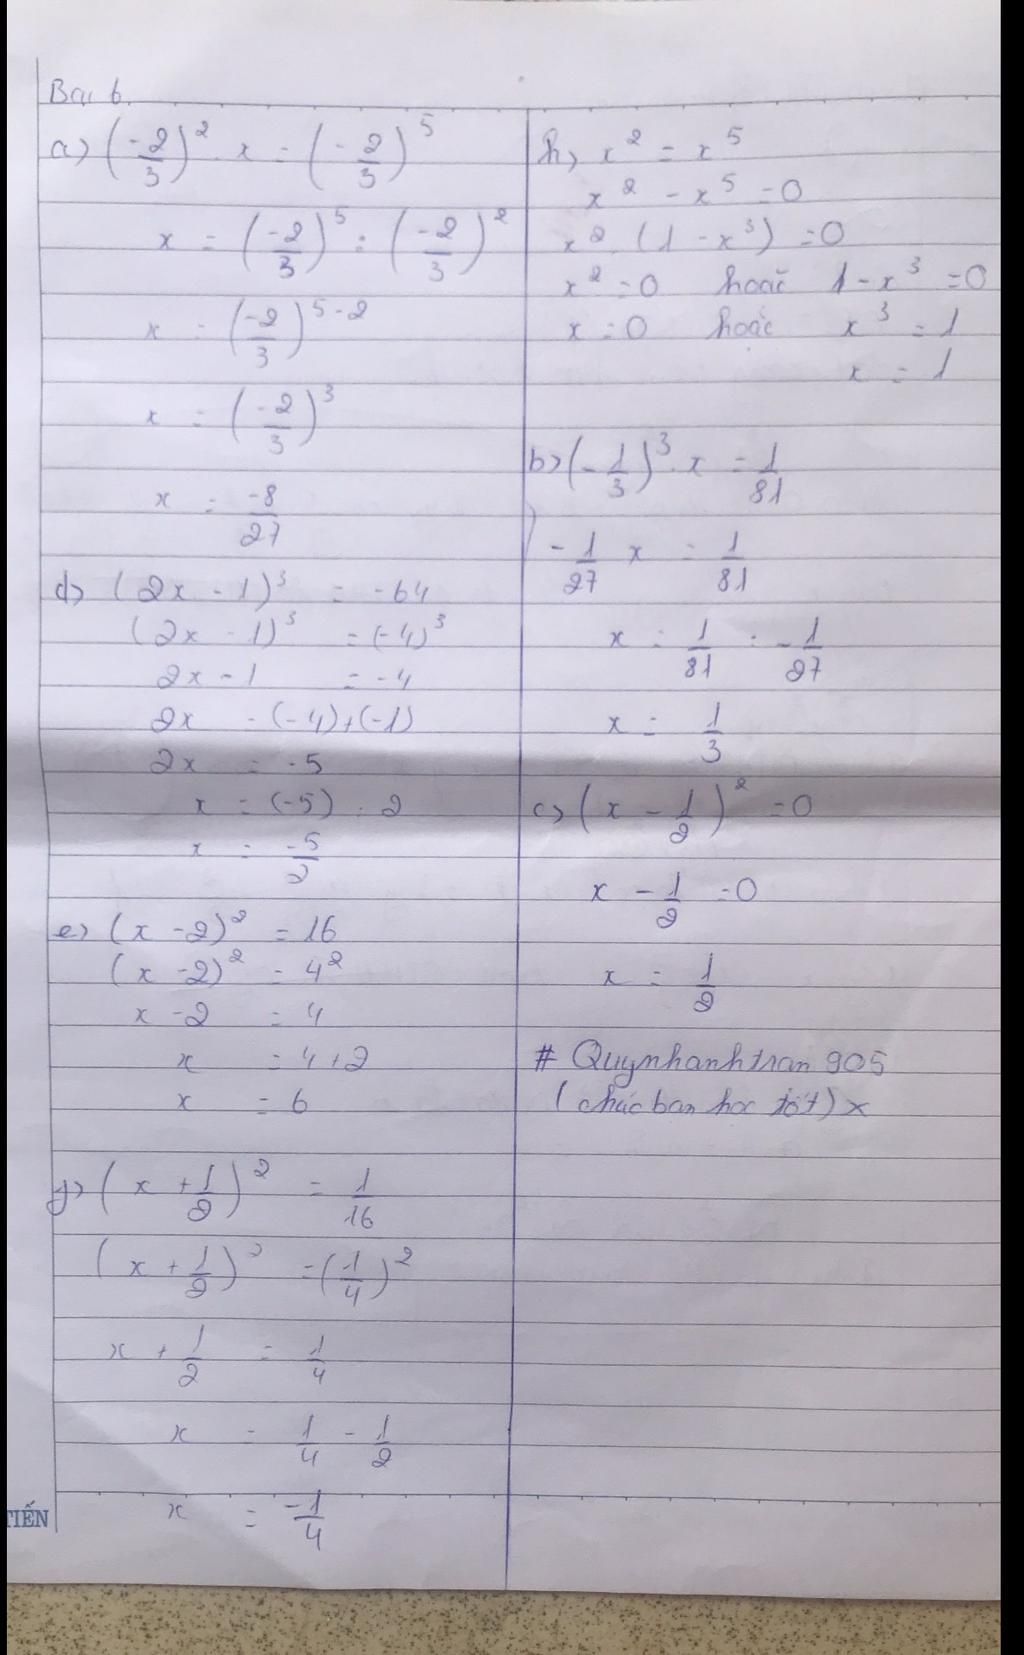 Bài 6.
a) (-2/3)^2 . x = (-2/3)^5
x = (-2/3)^5 : (-2/3)^2
x = (-2/3)^5-2
x = (-2/3)^3
x = -8/27
d) (2x - 1)^3 = -64
(2x - 1)^3 = (-4)^3
2x - 1 = -4
2x = (-4)+(-1)
2x = -5
x = (-5) : 2
x = -5/2
e) (x - 2)^2 = 16
(x - 2)^2 = 4^2
x - 2 = 4
x = 4+2
x = 6
g) (x + 1/2)^2 = 1/16
(x + 1/2)^2 = (1/4)^2
x + 1/2 = 1/4
x = 1/4 - 1/2
x = -1/4
TIẾN
h) x^2 = x^5
x^2 - x^5 = 0
x^2 . (1 - x^3) = 0
x^2 = 0 hoặc 1 - x^3 = 0
x = 0 hoặc x^3 = 1
x = 1
b) (-1/3)^3 . x = 1/81
-1/27 x = 1/81
x = 1/81 : -1/27
x = 1/3
c) (x - 1/2)^2 = 0
x - 1/2 = 0
x = 1/2
# Quynhanhtran 905
(chúc bạn học tốt) x